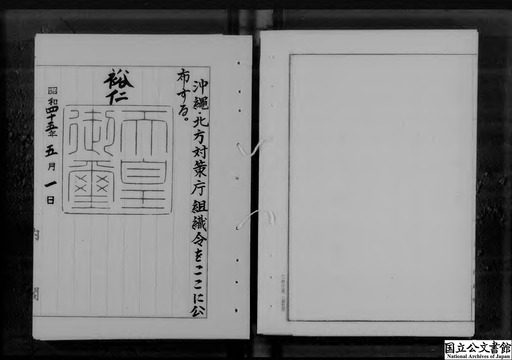 沖縄・北方対策庁組織令をここに公
布する。
裕仁
天皇
御璽
昭和四十五年五月一日
内閣
国立公文書館
National Archives of Japan